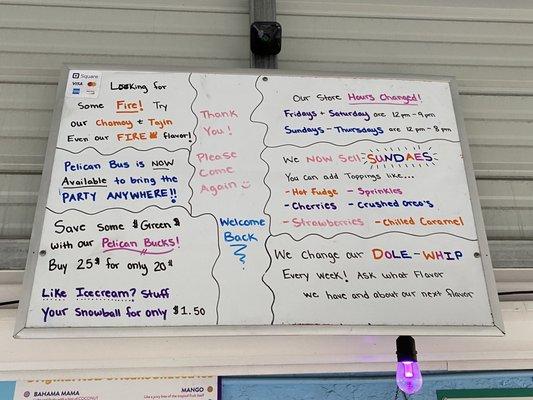 Square
VISA
Looking for
Some Fire! Try
our Chamoy + Tajin
Even our FIRE flavor!
Pelican Bus is NOW
Available to bring the
PARTY ANYWHERE!!
Save some $Green$
with our Pelican Bucks!
Buy 25$ for only 20$
Like Icecream? Stuff
Your Snowball for only $1.50
Thank
You!
Please
Come
Again
Welcome
Back
Our Store Hours Changed!
Fridays + Saturday are 12pm-9pm
Sundays - Thursdays are 12pm-8pm
We NOW Sell SUNDAES
You can add Toppings like...
-Hot Fudge -Sprinkles
-Cherries -Crushed Oreo's
-Strawberries -Chilled Caramel
We Change our DOLE-WHIP
Every week! Ask what Flavor
we have and about our next flavor
BAHAMA MAMA
MANGO